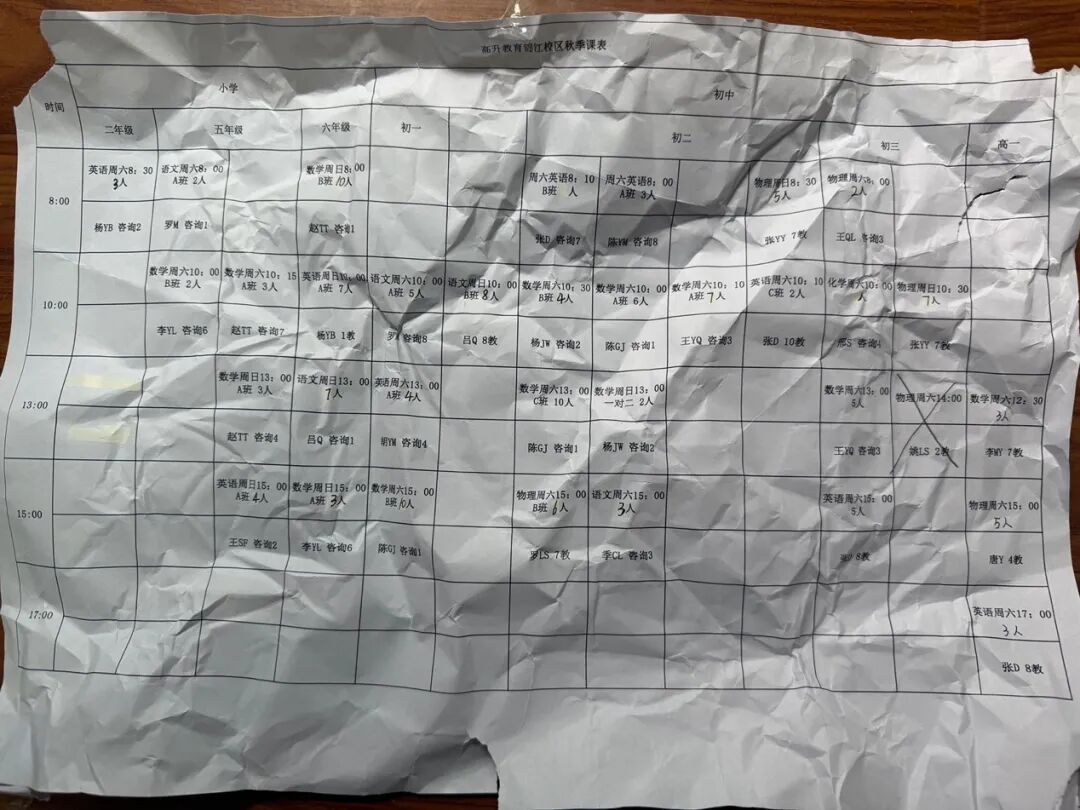 高升教育锦江校区秋季课表
时间 小学 初中
二年级 五年级 六年级 初一 初二 初三 高一
8:00
英语周六8:30 语文周六8:00 数学周日8:00 周六英语8:10 周六英语8:00 物理周日8:30 物理周六8:00
3人 A班 2人 B班 10人 B班 人 A班 3人 5人 2人
杨YB 咨询2 罗M 咨询1 赵TT 咨询1 张D 咨询7 陈YM 咨询8 张YY 7教 王QL 咨询3
10:00
数学周六10:00 数学周六10:15 英语周日10:00 语文周六10:00 语文周日10:00 数学周六10:30 数学周六10:00 数学周六10:10 英语周六10:10 化学周六10:00 物理周日10:30
B班 2人 A班 3人 A班 7人 A班 5人 B班 8人 B班 4人 A班 6人 A班 7人 C班 2人 人 7人
李YL 咨询6 赵TT 咨询7 杨YB 1教 罗 咨询8 吕Q 8教 杨JW 咨询2 陈GJ 咨询1 王YQ 咨询3 张D 10教 邢S 咨询4 张YY 7教
13:00
数学周日13:00 语文周日13:00 英语周六13:00 数学周六13:00 数学周日13:00 数学周六13:00 物理周六14:00 数学周六12:30
A班 3人 7人 A班 4人 C班 10人 一对二 2人 5人 3人
赵TT 咨询4 吕Q 咨询1 胡YM 咨询4 陈GJ 咨询1 杨JW 咨询2 王YQ 咨询3 姚LS 2教 李MY 7教
15:00
英语周日15:00 数学周日15:00 数学周六15:00 物理周六15:00 语文周六15:00 英语周六15:00 物理周六15:00
A班 4人 A班 3人 B班 10人 B班 6人 3人 5人 5人
王SF 咨询2 李YL 咨询6 陈GJ 咨询1 罗LS 7教 季CL 咨询3 8教 唐Y 4教
17:00
英语周六17:00
3人
张D 8教